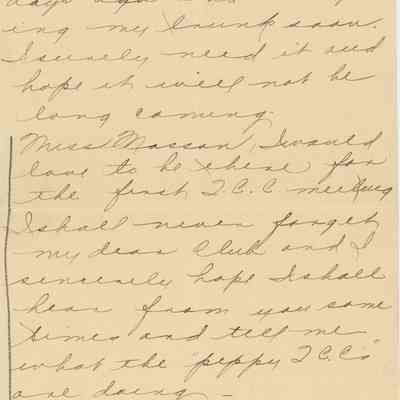 ing my trunk soon.
I surely need it and
hope it will not be
long coming.
Miss Massan, I would
love to be there for
the first T.C.C. meeting
I shall never forget
my dear Club and I
sincerely hope I shall
hear from you some
times and tell me
what the "peppy T.C.C.'s"
are doing -